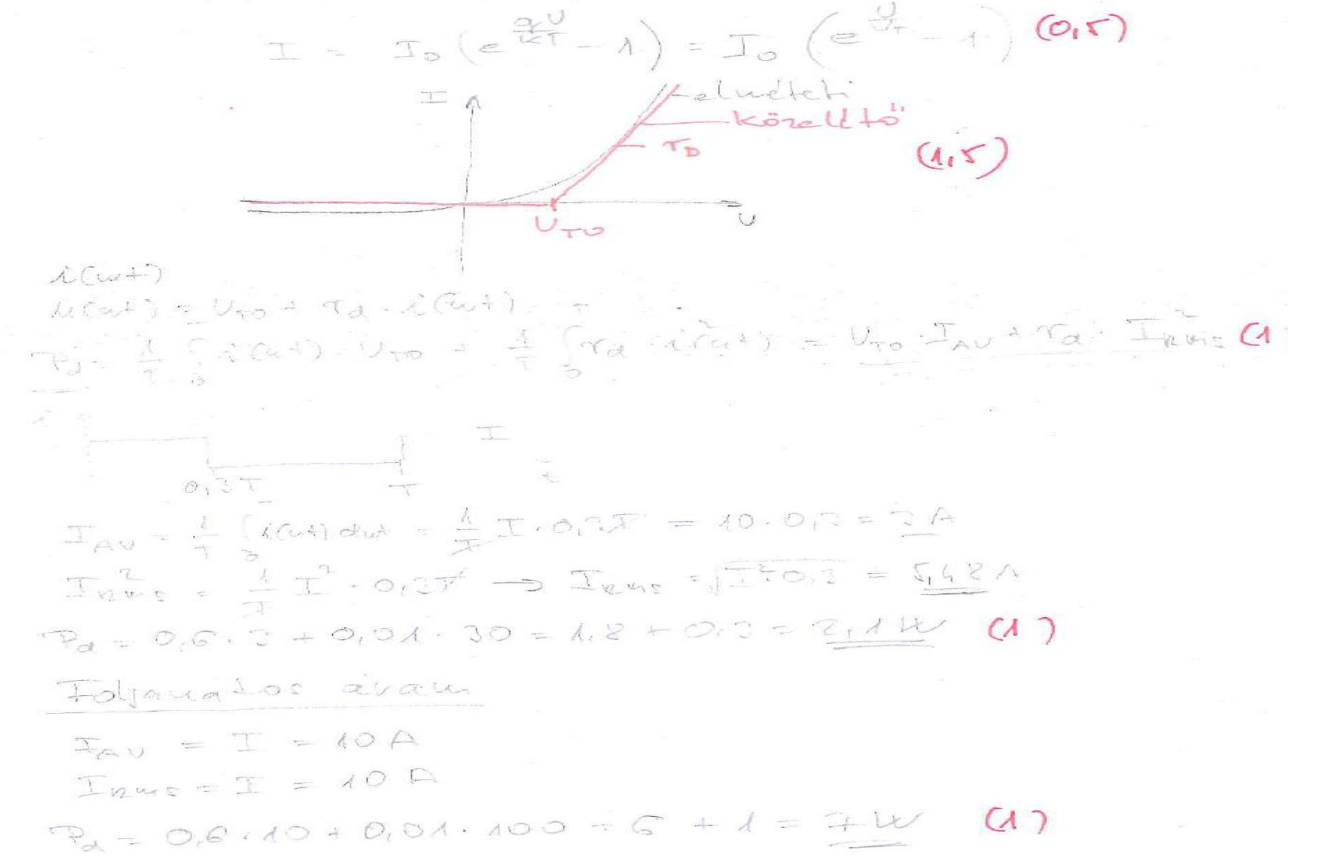 I = I₀ (e^(qU/kT) - 1) = I₀ (e^(U/U_T) - 1) (0,5)
I
elméleti
közelítő
r_D
(1,5)
U
U_TO
i(ωt)
u(ωt) = U_TO + r_d · i(ωt)
P_d = 1/T ∫ i(ωt) · U_TO + 1/T ∫ r_d · i²(ωt) = U_TO · I_AV + r_d · I²_RMS (1
i
I
0,3T
T
t
I_AV = 1/T ∫ i(ωt) dωt = 1/T I · 0,3T = 10 · 0,3 = 3 A
I²_RMS = 1/T I² · 0,3T → I_RMS = √(I² · 0,3) = 5,48 A
P_d = 0,6 · 3 + 0,01 · 30 = 1,8 + 0,3 = 2,1 W (1)
Folyamatos áram
I_AV = I = 10 A
I_RMS = I = 10 A
P_d = 0,6 · 10 + 0,01 · 100 = 6 + 1 = 7 W (1)